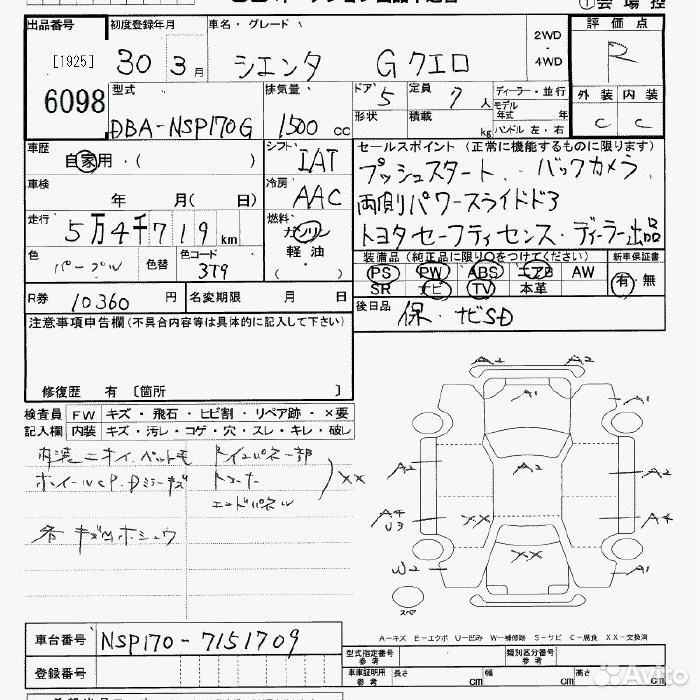 出品番号 初度登録年月 車名・グレード 2WD ・ 4WD 評価点
[1925] 30 3月 シエンタ G クエロ R
6098 型式 排気量 ドア 5 定員 7人 ディーラー・並行 外装 内装
DBA-NSP170G 1500cc 形状 積載 kg モデル年式 年 ハンドル 左・右 C C
車歴 自家用・( ) シフト IAT セールスポイント (正常に機能するものに限ります)
車検 年 月( 日) 冷房 AAC プッシュスタート・バックカメラ
走行 5万4千719km 燃料 ガソリン 軽油 両側パワースライドドア
色 パープル 色替 色コード 3T9 トヨタセーフティセンス・ディーラー出品
装備品 (純正品に限り○をつけてください) 新車保証書
PS PW ABS エアB AW 有・無
SR ナビ TV 本革
R券 10360円 名変期限 月 日 後日品 保・ナビSD
注意事項申告欄(不具合内容等は具体的に記入して下さい)
修復歴 有 〔箇所 〕
検査員 FW キズ・飛石・ヒビ割・リペア跡・×要
記入欄 内装 キズ・汚レ・コゲ・穴・スレ・キレ・破レ
内装ニオイ、ペット毛 Rインパネ一部
ホイールCP、Dミラーキズ トコナー XX
エンドパネル
各キズ凹ホショウ
A2 A2
A1 A1
A2 A2 A2
A4 U3 XX A4
XX
W2 A1
スペア
A-キズ E-エクボ U-凹み W-補修跡 S-サビ C-腐食 XX-交換済
車台番号 NSP170-7151709
型式指定番号 参考 類別区分番号 参考
登録番号 車庫証明用 参考 長さ cm 幅 cm 高さ cm
Avito